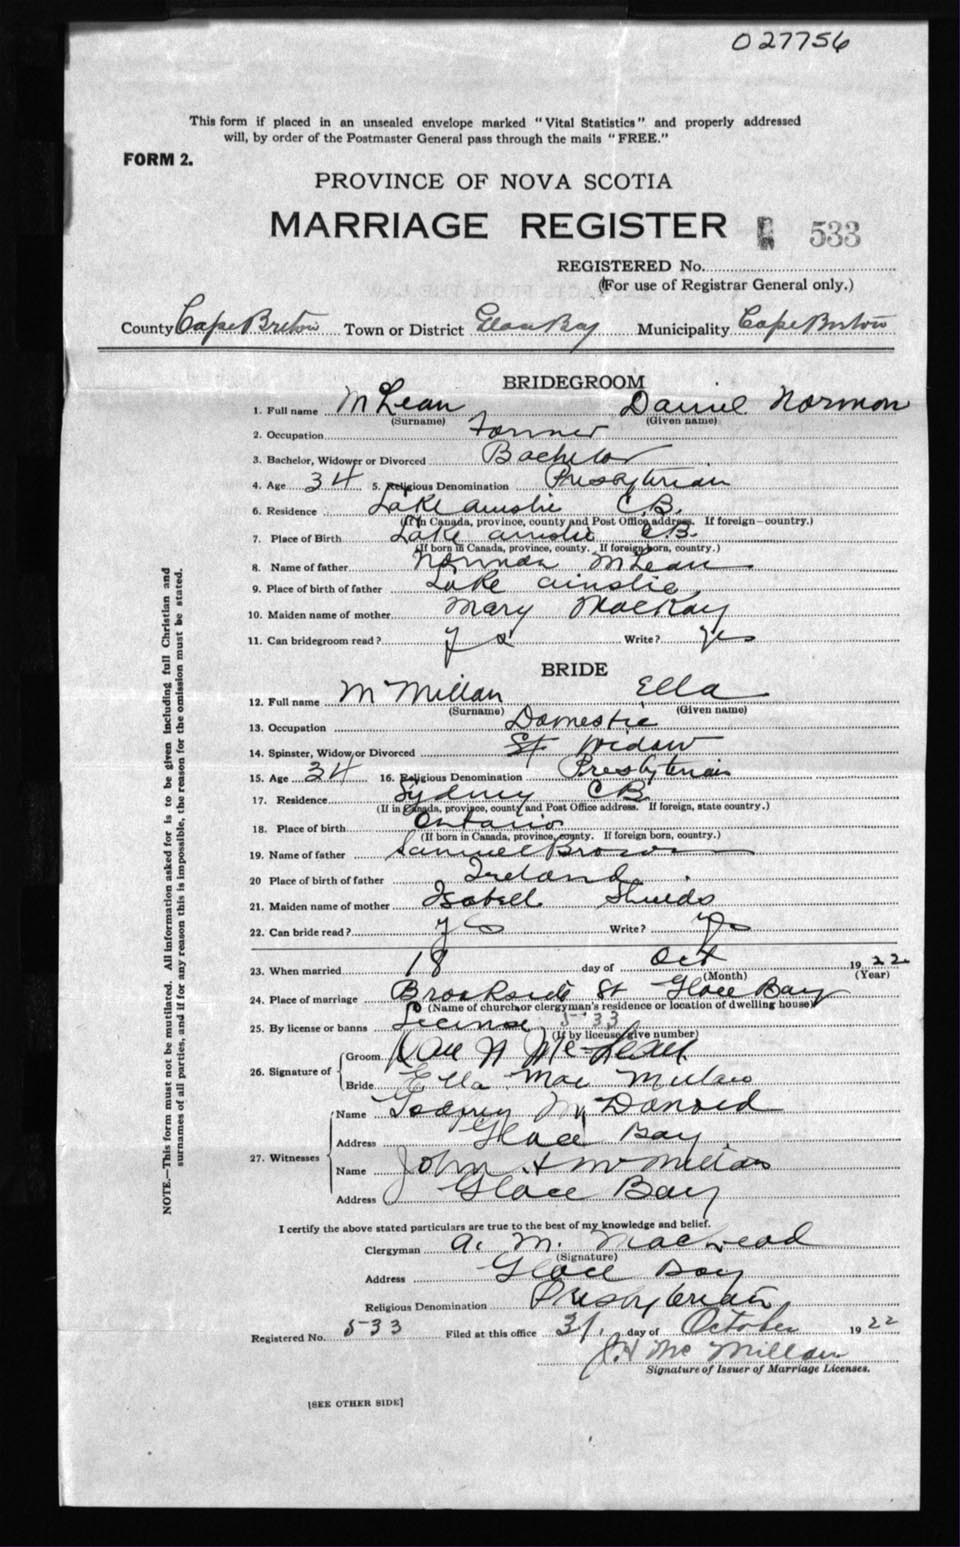 027756
This form if placed in an unsealed envelope marked "Vital Statistics" and properly addressed
will, by order of the Postmaster General pass through the mails "FREE."
FORM 2.
PROVINCE OF NOVA SCOTIA
MARRIAGE REGISTER 533
REGISTERED No.
(For use of Registrar General only.)
County Cape Breton Town or District Glace Bay Municipality Cape Breton
BRIDEGROOM
1. Full name McLean Daniel Norman
(Surname) (Given name)
2. Occupation Farmer
3. Bachelor, Widower or Divorced Bachelor
4. Age 34 5. Religious Denomination Presbyterian
6. Residence Lake Ainslie C.B.
(If in Canada, province, county and Post Office address. If foreign—country.)
7. Place of Birth Lake Ainslie C.B.
(If born in Canada, province, county. If foreign born, country.)
8. Name of father Norman McLean
9. Place of birth of father Lake Ainslie
10. Maiden name of mother Mary MacKay
11. Can bridegroom read? Yes Write? Yes
BRIDE
12. Full name McMillan Ella
(Surname) (Given name)
13. Occupation Domestic
14. Spinster, Widow or Divorced Widow
15. Age 34 16. Religious Denomination Presbyterian
17. Residence Sydney C.B.
(If in Canada, province, county and Post Office address. If foreign, state country.)
18. Place of birth Ontario
(If born in Canada, province, county. If foreign born, country.)
19. Name of father Samuel Brown
20 Place of birth of father Ireland
21. Maiden name of mother Isabell Shields
22. Can bride read? Yes Write? Yes
23. When married 18 day of Oct 1922
(Month) (Year)
24. Place of marriage Brookside St Glace Bay
(Name of church or clergyman's residence or location of dwelling house)
25. By license or banns License 533
(If by license give number)
26. Signature of
Groom Dan N McLean
Bride Ella Mac Millan
27. Witnesses
Name McDonald
Address Glace Bay
Name John H McMillan
Address Glace Bay
I certify the above stated particulars are true to the best of my knowledge and belief.
Clergyman A. M. MacLeod
(Signature)
Address Glace Bay
Religious Denomination Presbyterian
Registered No. 533 Filed at this office 31, day of October 1922
J. H McMillan
Signature of Issuer of Marriage Licenses.
[SEE OTHER SIDE]
NOTE.—This form must not be mutilated. All information asked for is to be given including full Christian and
surnames of all parties, and if for any reason this is impossible, the reason for the omission must be stated.